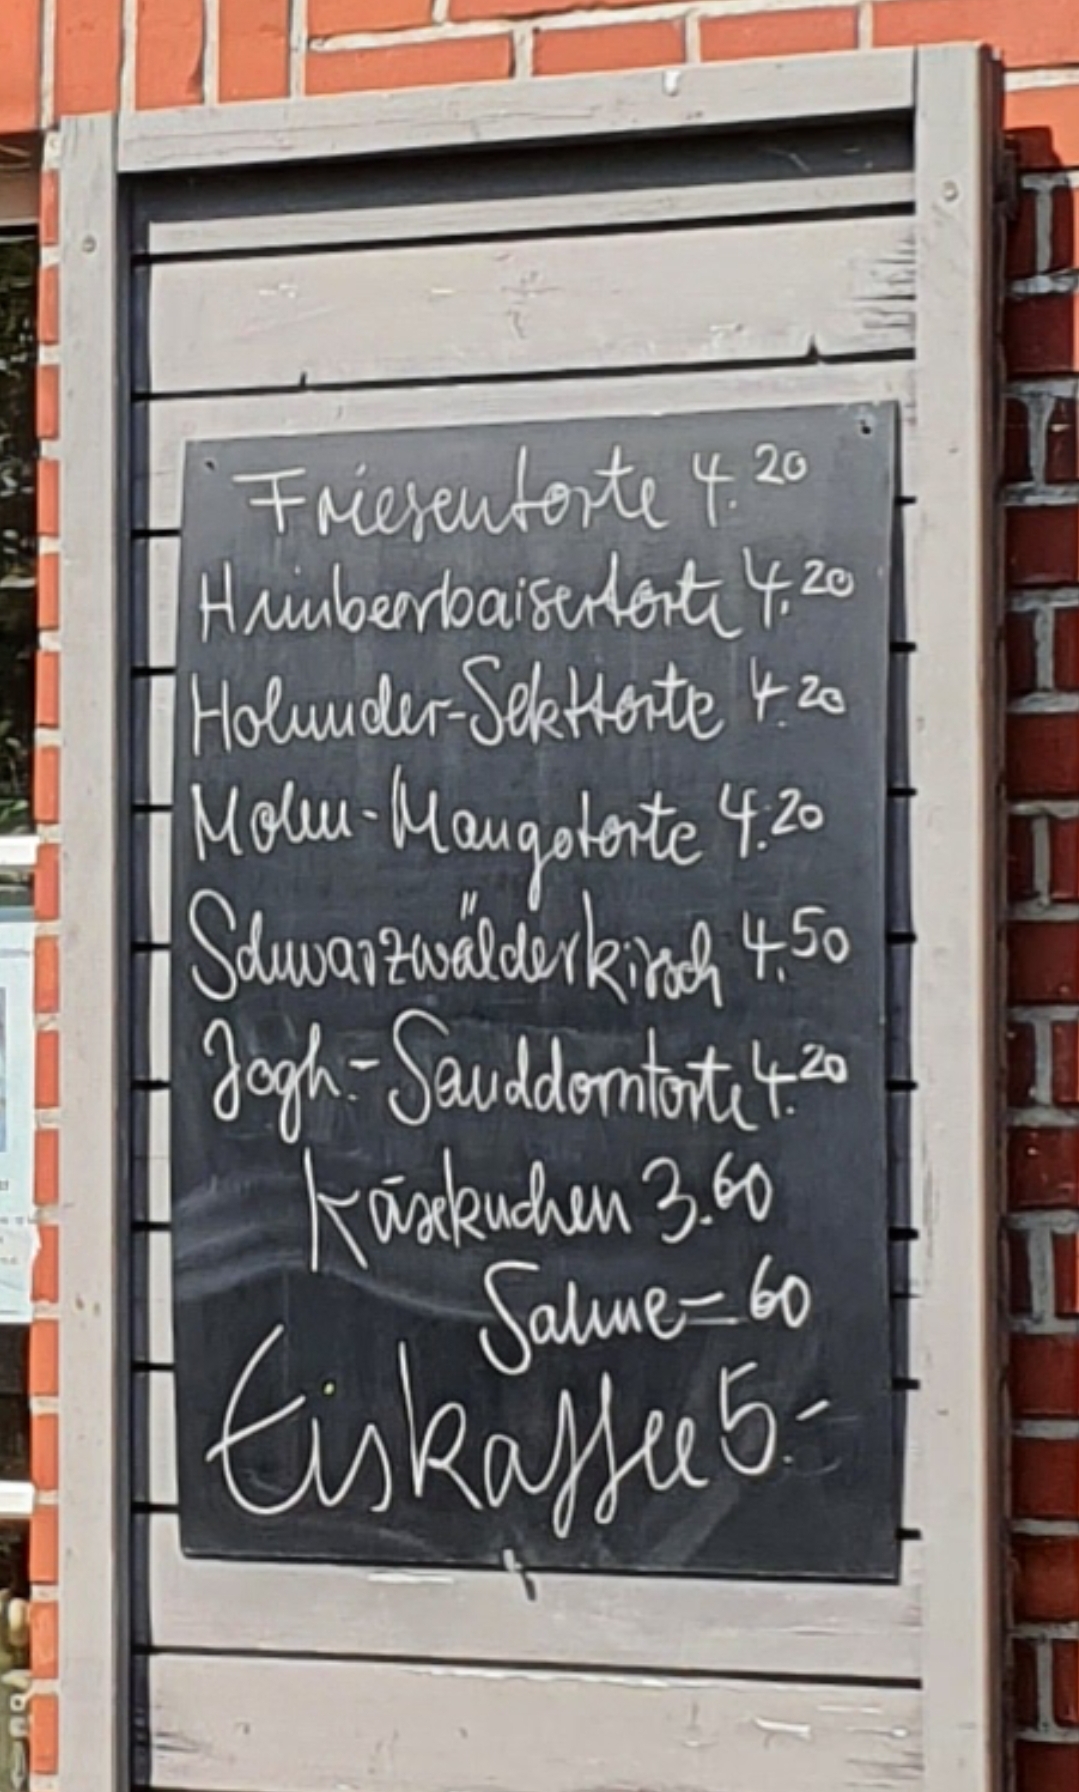 Friesentorte 4.20
Himbeerbaisertorte 4.20
Holunder-Sekttorte 4.20
Mohn-Mangotorte 4.20
Schwarzwälderkirsch 4.50
Jogh.-Sanddorntorte 4.20
Käsekuchen 3.60
Sahne -.60
Eiskaffee 5.-